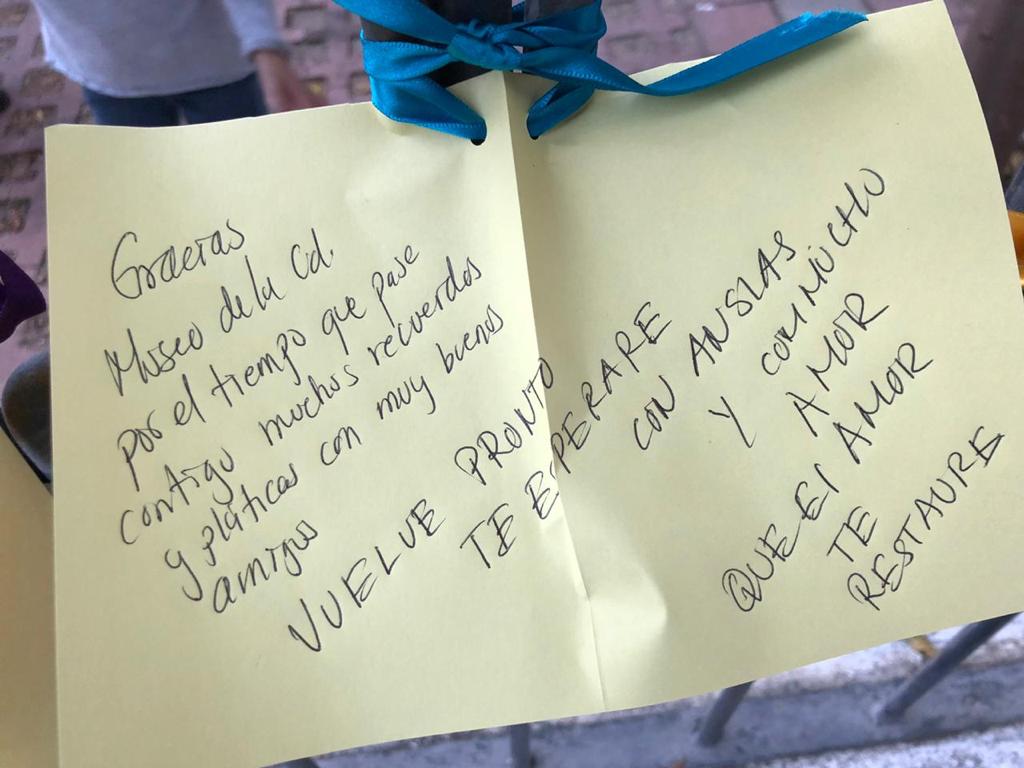 Gracias
Museo de la Cd.
por el tiempo que pase
contigo muchos recuerdos
y pláticas con muy buenos
amigos
VUELVE PRONTO
TE ESPERARE
CON ANSIAS
Y CON MUCHO
AMOR
QUE El AMOR
TE
RESTAURE